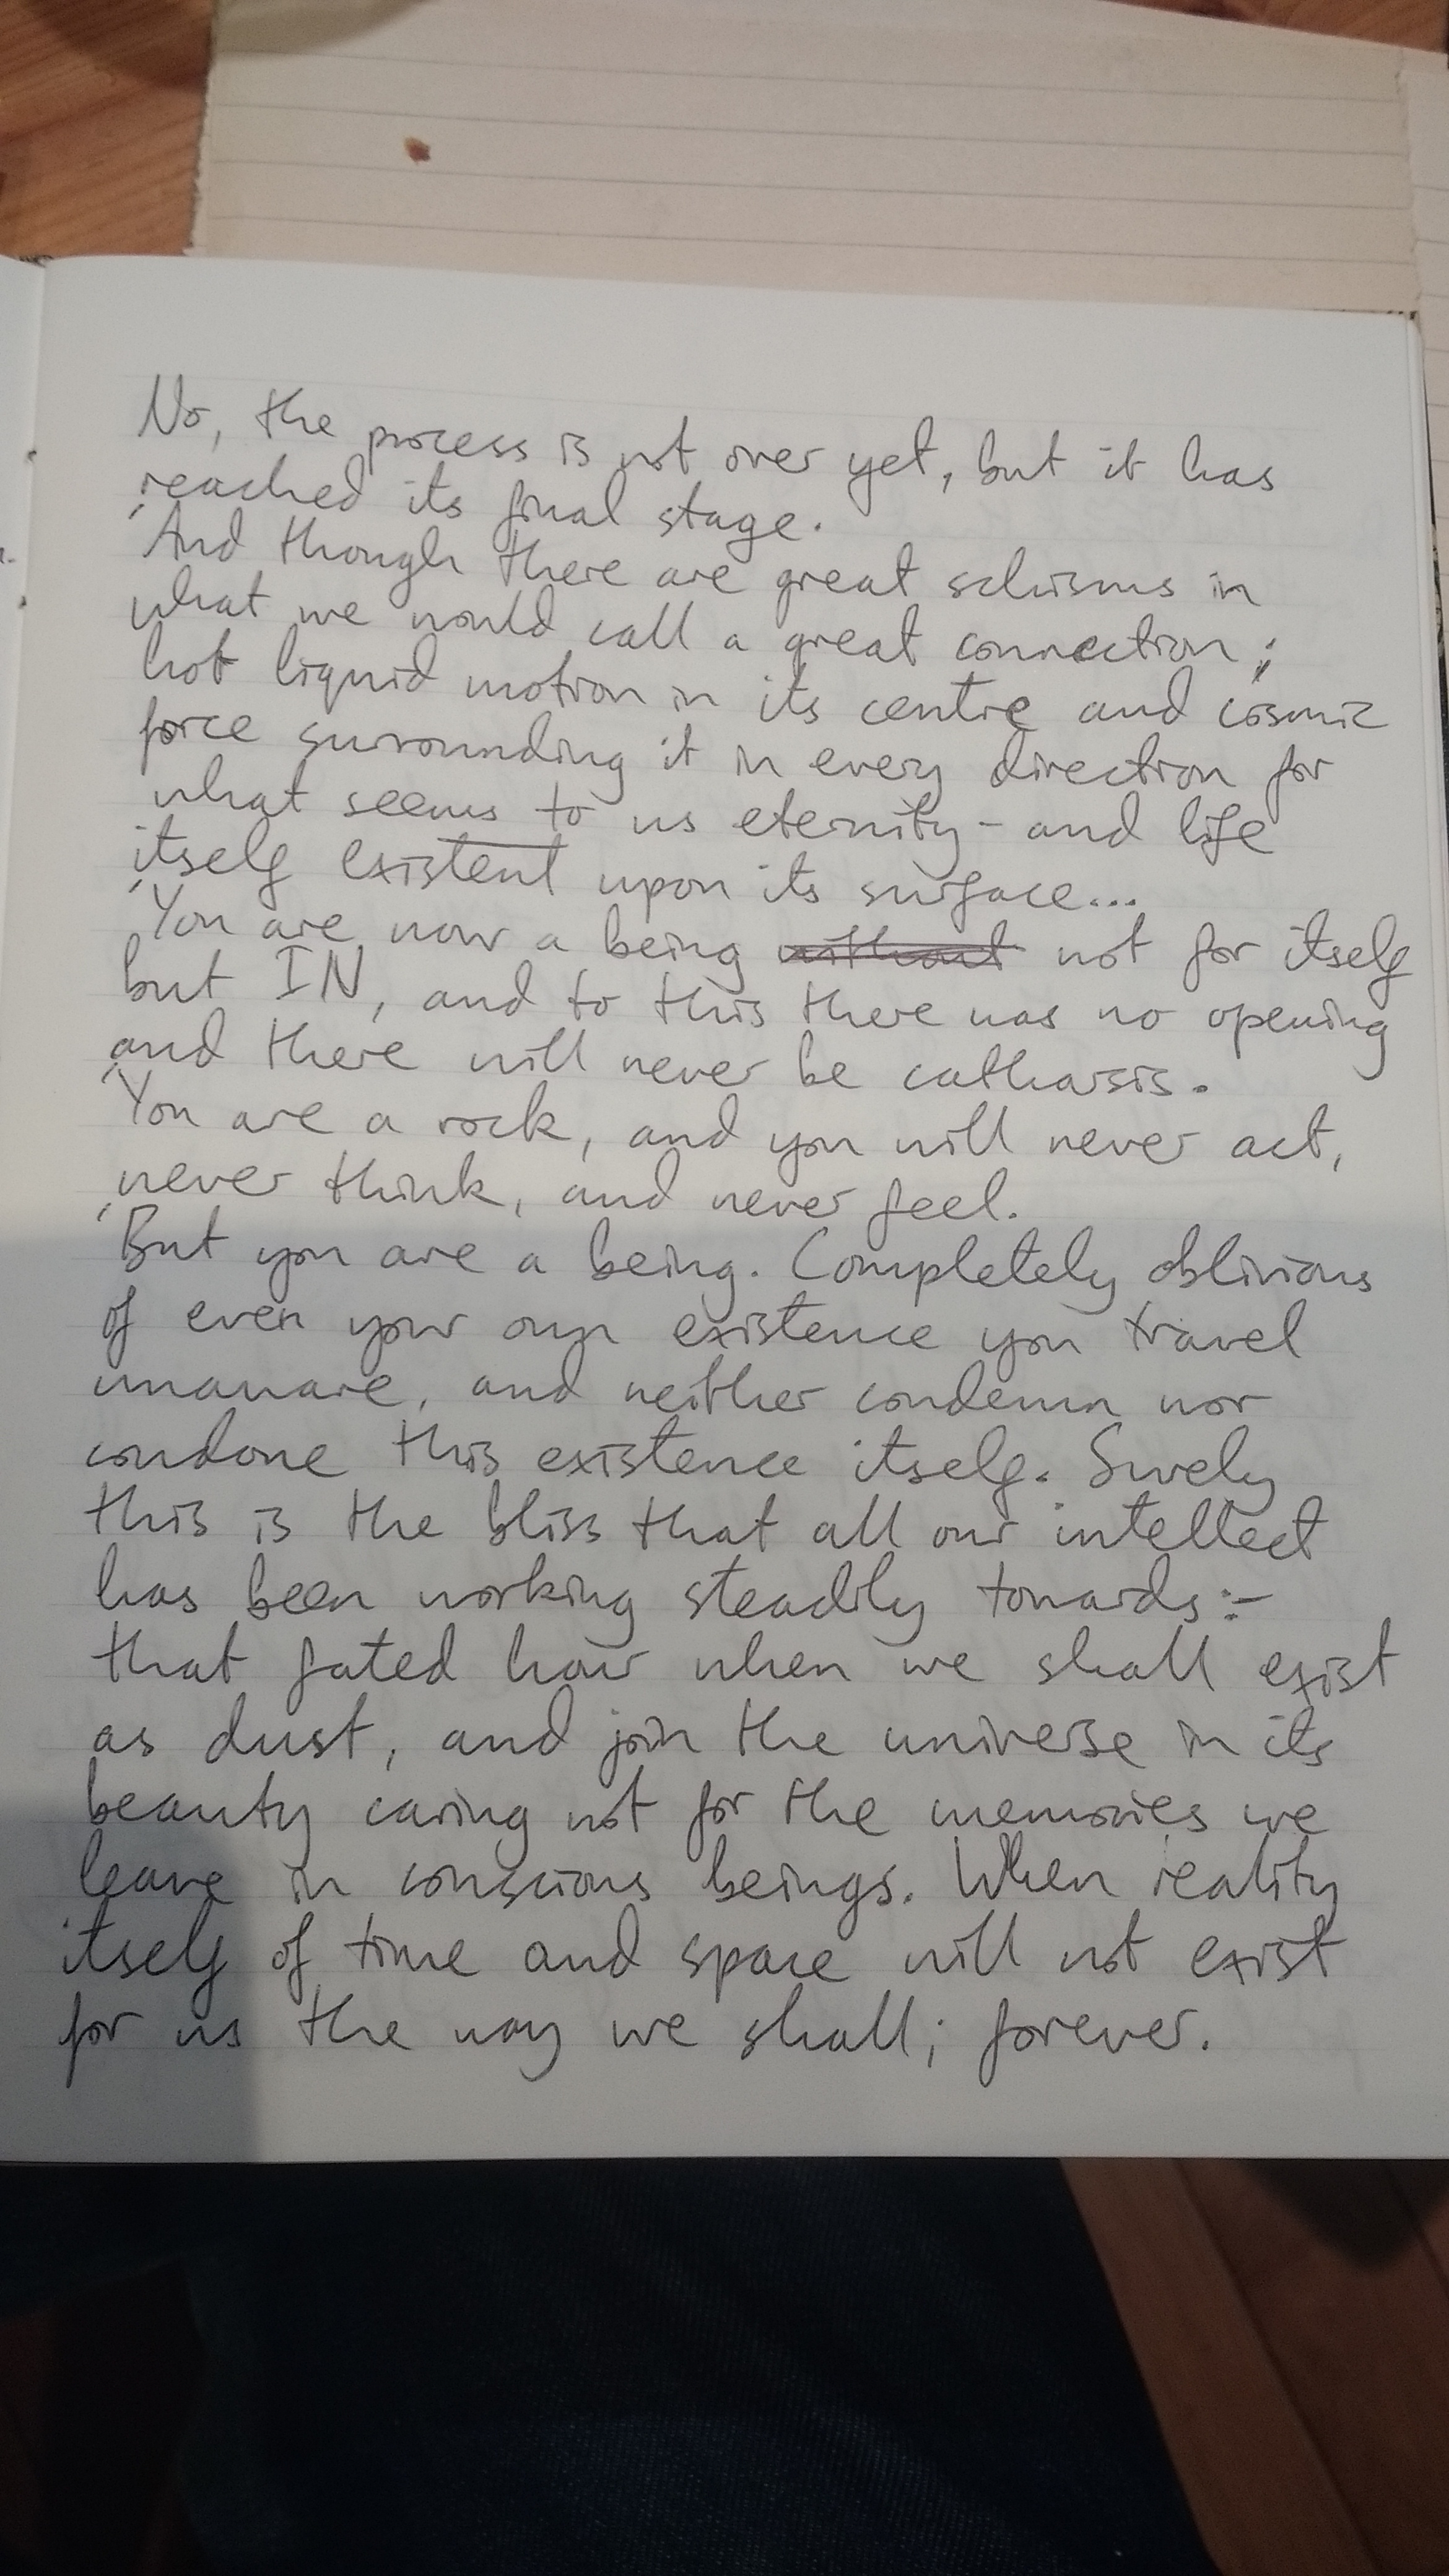 No, the process is not over yet, but it has
reached its final stage.
And though there are great schisms in
what we would call a great connection;
hot liquid motion in its centre and cosmic
force surrounding it in every direction for
what seems to us eternity - and life
itself existent upon its surface...
You are now a being without not for itself
but IN, and to this there was no opening
and there will never be catharsis.
You are a rock, and you will never act,
never think, and never feel.
But you are a being. Completely oblivious
of even your own existence you travel
unaware, and neither condemn nor
condone this existence itself. Surely
this is the bliss that all our intellect
has been working steadily towards:-
that fated hour when we shall exist
as dust, and join the universe in its
beauty caring not for the memories we
leave in conscious beings. When reality
itself of time and space will not exist
for us the way we shall; forever.